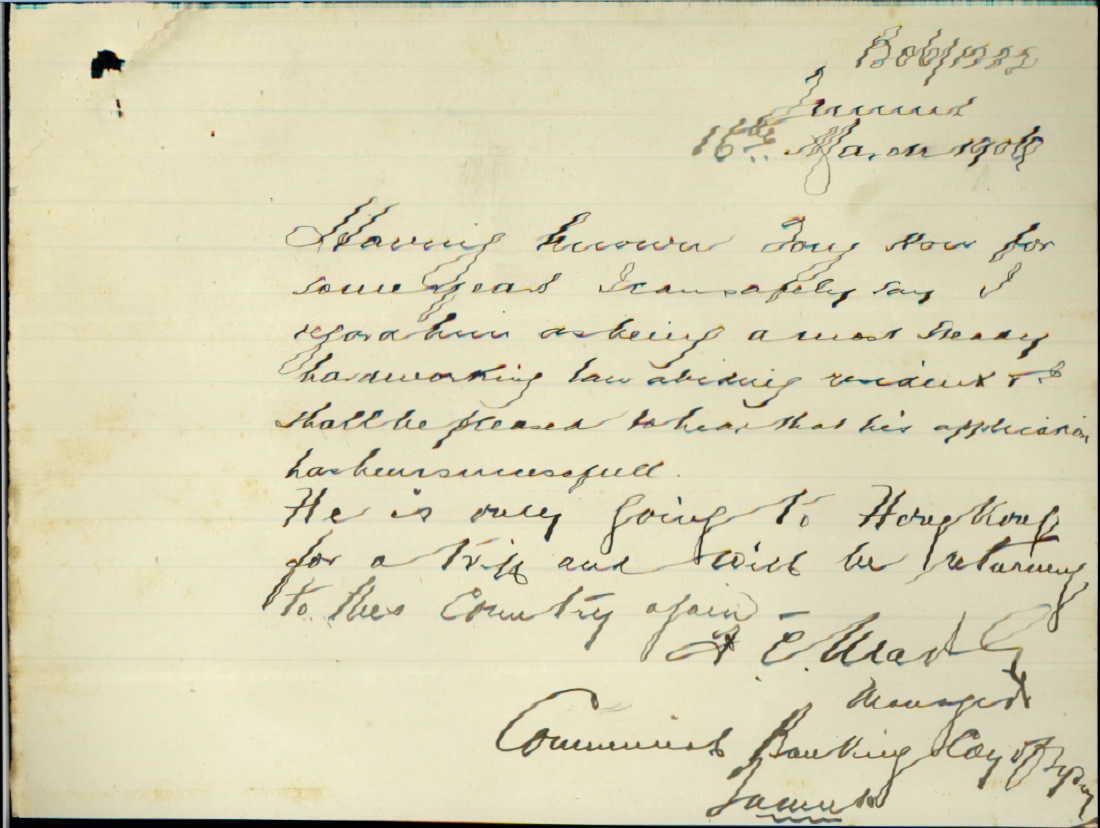 16th March 190
Having known Tong How for
some years I can safely say I
regard him as being a most steady
hardworking law abiding resident &
shall be pleased to hear that his application
has been successfull.
He is only going to Hong Kong
for a trip and will be returning
to this Country again
Manager
Commercial Banking Coy of Sydney